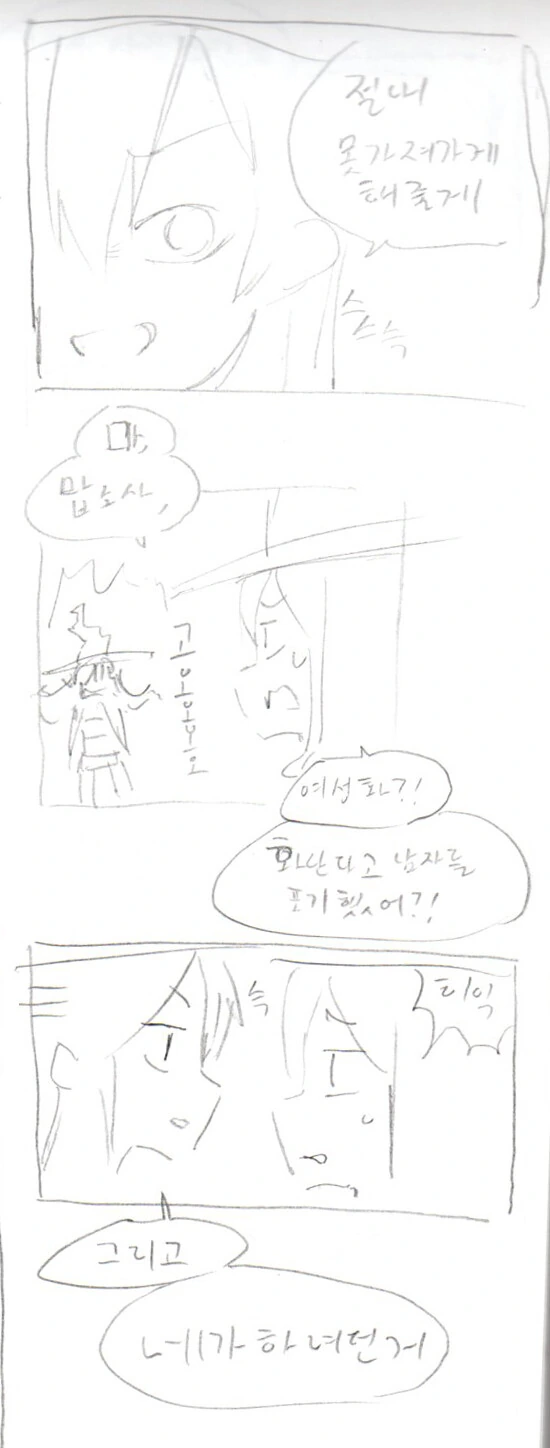 절대
못가져가게
해줄게
스
스
슥
마,
맙소사,
고
오
오
오
오
여성화?!
화난다고 남자를
포기했어?!
슥
티익
그리고
네가 하려던거